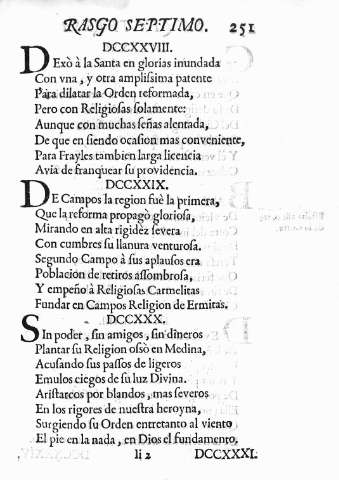 RASGO SEPTIMO. 251
DCCXXVIII.
DExò à la Santa en glorias inundada
Con vna, y otra amplissima patente
Para dilatar la Orden reformada,
Pero con Religiosas solamente:
Aunque con muchas señas alentada,
De que en siendo ocasion mas conveniente,
Para Frayles tambien larga licencia
Avia de franquear su providencia.
DCCXXIX.
DE Campos la region fuè la primera,
Que la reforma propagò gloriosa,
Mirando en alta rigidèz severa
Con cumbres su llanura venturosa.
Segundo Campo à sus aplausos era
Poblacion de retiros assombrosa,
Y empeño à Religiosas Carmelitas
Fundar en Campos Religion de Ermitas.
DCCXXX.
SIn poder, sin amigos, sin dineros
Plantar su Religion ossò en Medina,
Acusando sus passos de ligeros
Emulos ciegos de su luz Divina.
Aristarcos por blandos, mas severos
En los rigores de nuestra heroyna,
Surgiendo su Orden entretanto al viento
El pie en la nada, en Dios el fundamento,
Ii 2 DCCXXXI.